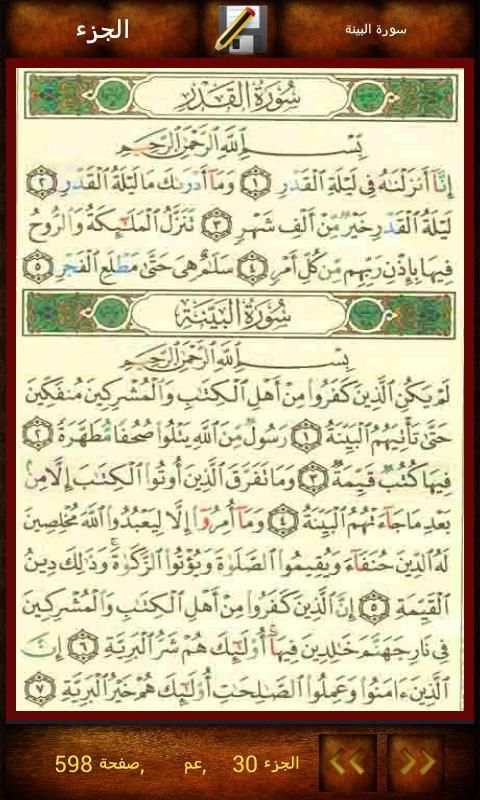 الجزء
سورة البينة
سُورَةُ القَدْرِ
بِسْمِ اللَّهِ الرَّحْمَنِ الرَّحِيمِ
إِنَّآ أَنزَلْنَٰهُ فِى لَيْلَةِ الْقَدْرِ ١ وَمَآ أَدْرَىٰكَ مَا لَيْلَةُ الْقَدْرِ ٢
لَيْلَةُ الْقَدْرِ خَيْرٌ مِّنْ أَلْفِ شَهْرٍ ٣ تَنَزَّلُ الْمَلَٰٓئِكَةُ وَالرُّوحُ
فِيهَا بِإِذْنِ رَبِّهِم مِّن كُلِّ أَمْرٍ ٤ سَلَٰمٌ هِىَ حَتَّىٰ مَطْلَعِ الْفَجْرِ ٥
سُورَةُ البَيِّنَةِ
بِسْمِ اللَّهِ الرَّحْمَنِ الرَّحِيمِ
لَمْ يَكُنِ الَّذِينَ كَفَرُوا مِنْ أَهْلِ الْكِتَٰبِ وَالْمُشْرِكِينَ مُنفَكِّينَ
حَتَّىٰ تَأْتِيَهُمُ الْبَيِّنَةُ ١ رَسُولٌ مِّنَ اللَّهِ يَتْلُوا صُحُفًا مُّطَهَّرَةً ٢
فِيهَا كُتُبٌ قَيِّمَةٌ ٣ وَمَا تَفَرَّقَ الَّذِينَ أُوتُوا الْكِتَٰبَ إِلَّا مِنۢ
بَعْدِ مَا جَآءَتْهُمُ الْبَيِّنَةُ ٤ وَمَآ أُمِرُوٓا إِلَّا لِيَعْبُدُوا اللَّهَ مُخْلِصِينَ
لَهُ الدِّينَ حُنَفَآءَ وَيُقِيمُوا الصَّلَوٰةَ وَيُؤْتُوا الزَّكَوٰةَ ۚ وَذَٰلِكَ دِينُ
الْقَيِّمَةِ ٥ إِنَّ الَّذِينَ كَفَرُوا مِنْ أَهْلِ الْكِتَٰبِ وَالْمُشْرِكِينَ
فِى نَارِ جَهَنَّمَ خَٰلِدِينَ فِيهَآ ۚ أُولَٰٓئِكَ هُمْ شَرُّ الْبَرِيَّةِ ٦ إِنَّ
الَّذِينَ ءَامَنُوا وَعَمِلُوا الصَّٰلِحَٰتِ أُولَٰٓئِكَ هُمْ خَيْرُ الْبَرِيَّةِ ٧
الجزء 30 ,عم ,صفحة 598